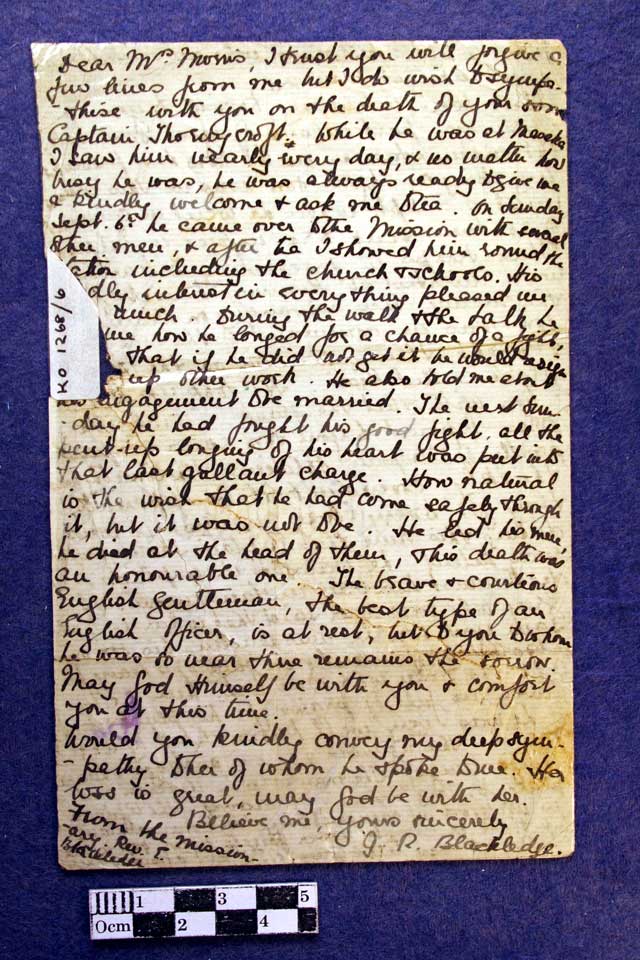 Dear Mrs Morris, I trust you will forgive a
few lines from me but I do wish to sympa-
-thise with you on the death of your son
Captain Thorneycroft. While he was at Maseka
I saw him nearly every day, & no matter how
busy he was, he was always ready to give me
a kindly welcome & ask me to tea. On Sunday
Sept. 6th he came over to the Mission with several
other men, & after tea I showed him round the
station including the church & schools. His
dly interest in everything pleased me
much. During the walk & the talk he
me how he longed for a chance of a fight,
that if he did not get it he would resign
up other work. He also told me about
his engagement to be married. The next Sun-
-day he had fought his good fight, all the
pent-up longing of his heart was put into
that last gallant charge. How natural
is the wish that he had come safely through
it, but it was not to be. He led his men,
he died at the head of them, & his death was
an honourable one. The brave & courteous
English gentleman, the best type of an
English officer, is at rest, but to you to whom
he was so near & dear remains the sorrow.
May God Himself be with you & comfort
you at this time.
Would you kindly convey my deep sym-
-pathy to her of whom he spoke to me. Her
loss is great, may God be with her.
Believe me, yours sincerely
J. R. Blackledge.
From the Mission-
-ary Rev. J.
Blackledge
KO 1268/6
0cm 1 2 3 4 5